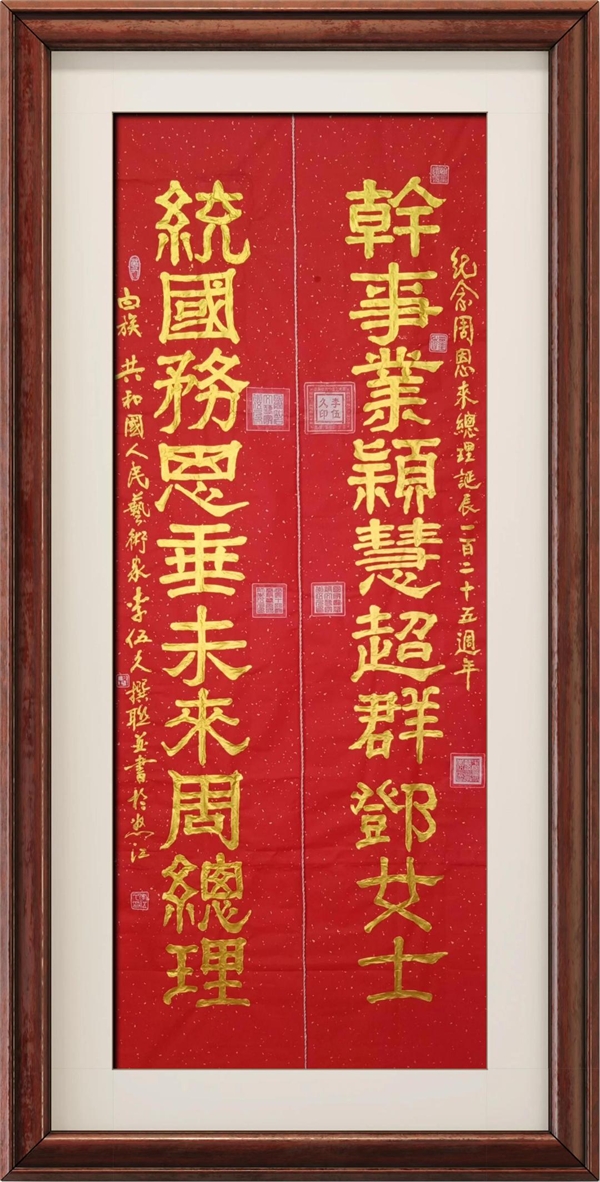 紀念周恩來總理誕辰一百二十五週年
幹事業穎慧超群鄧女士
李伍久印
統國務恩垂未來周總理
白族 共和國人民藝術家李伍久撰聯並書於怒江